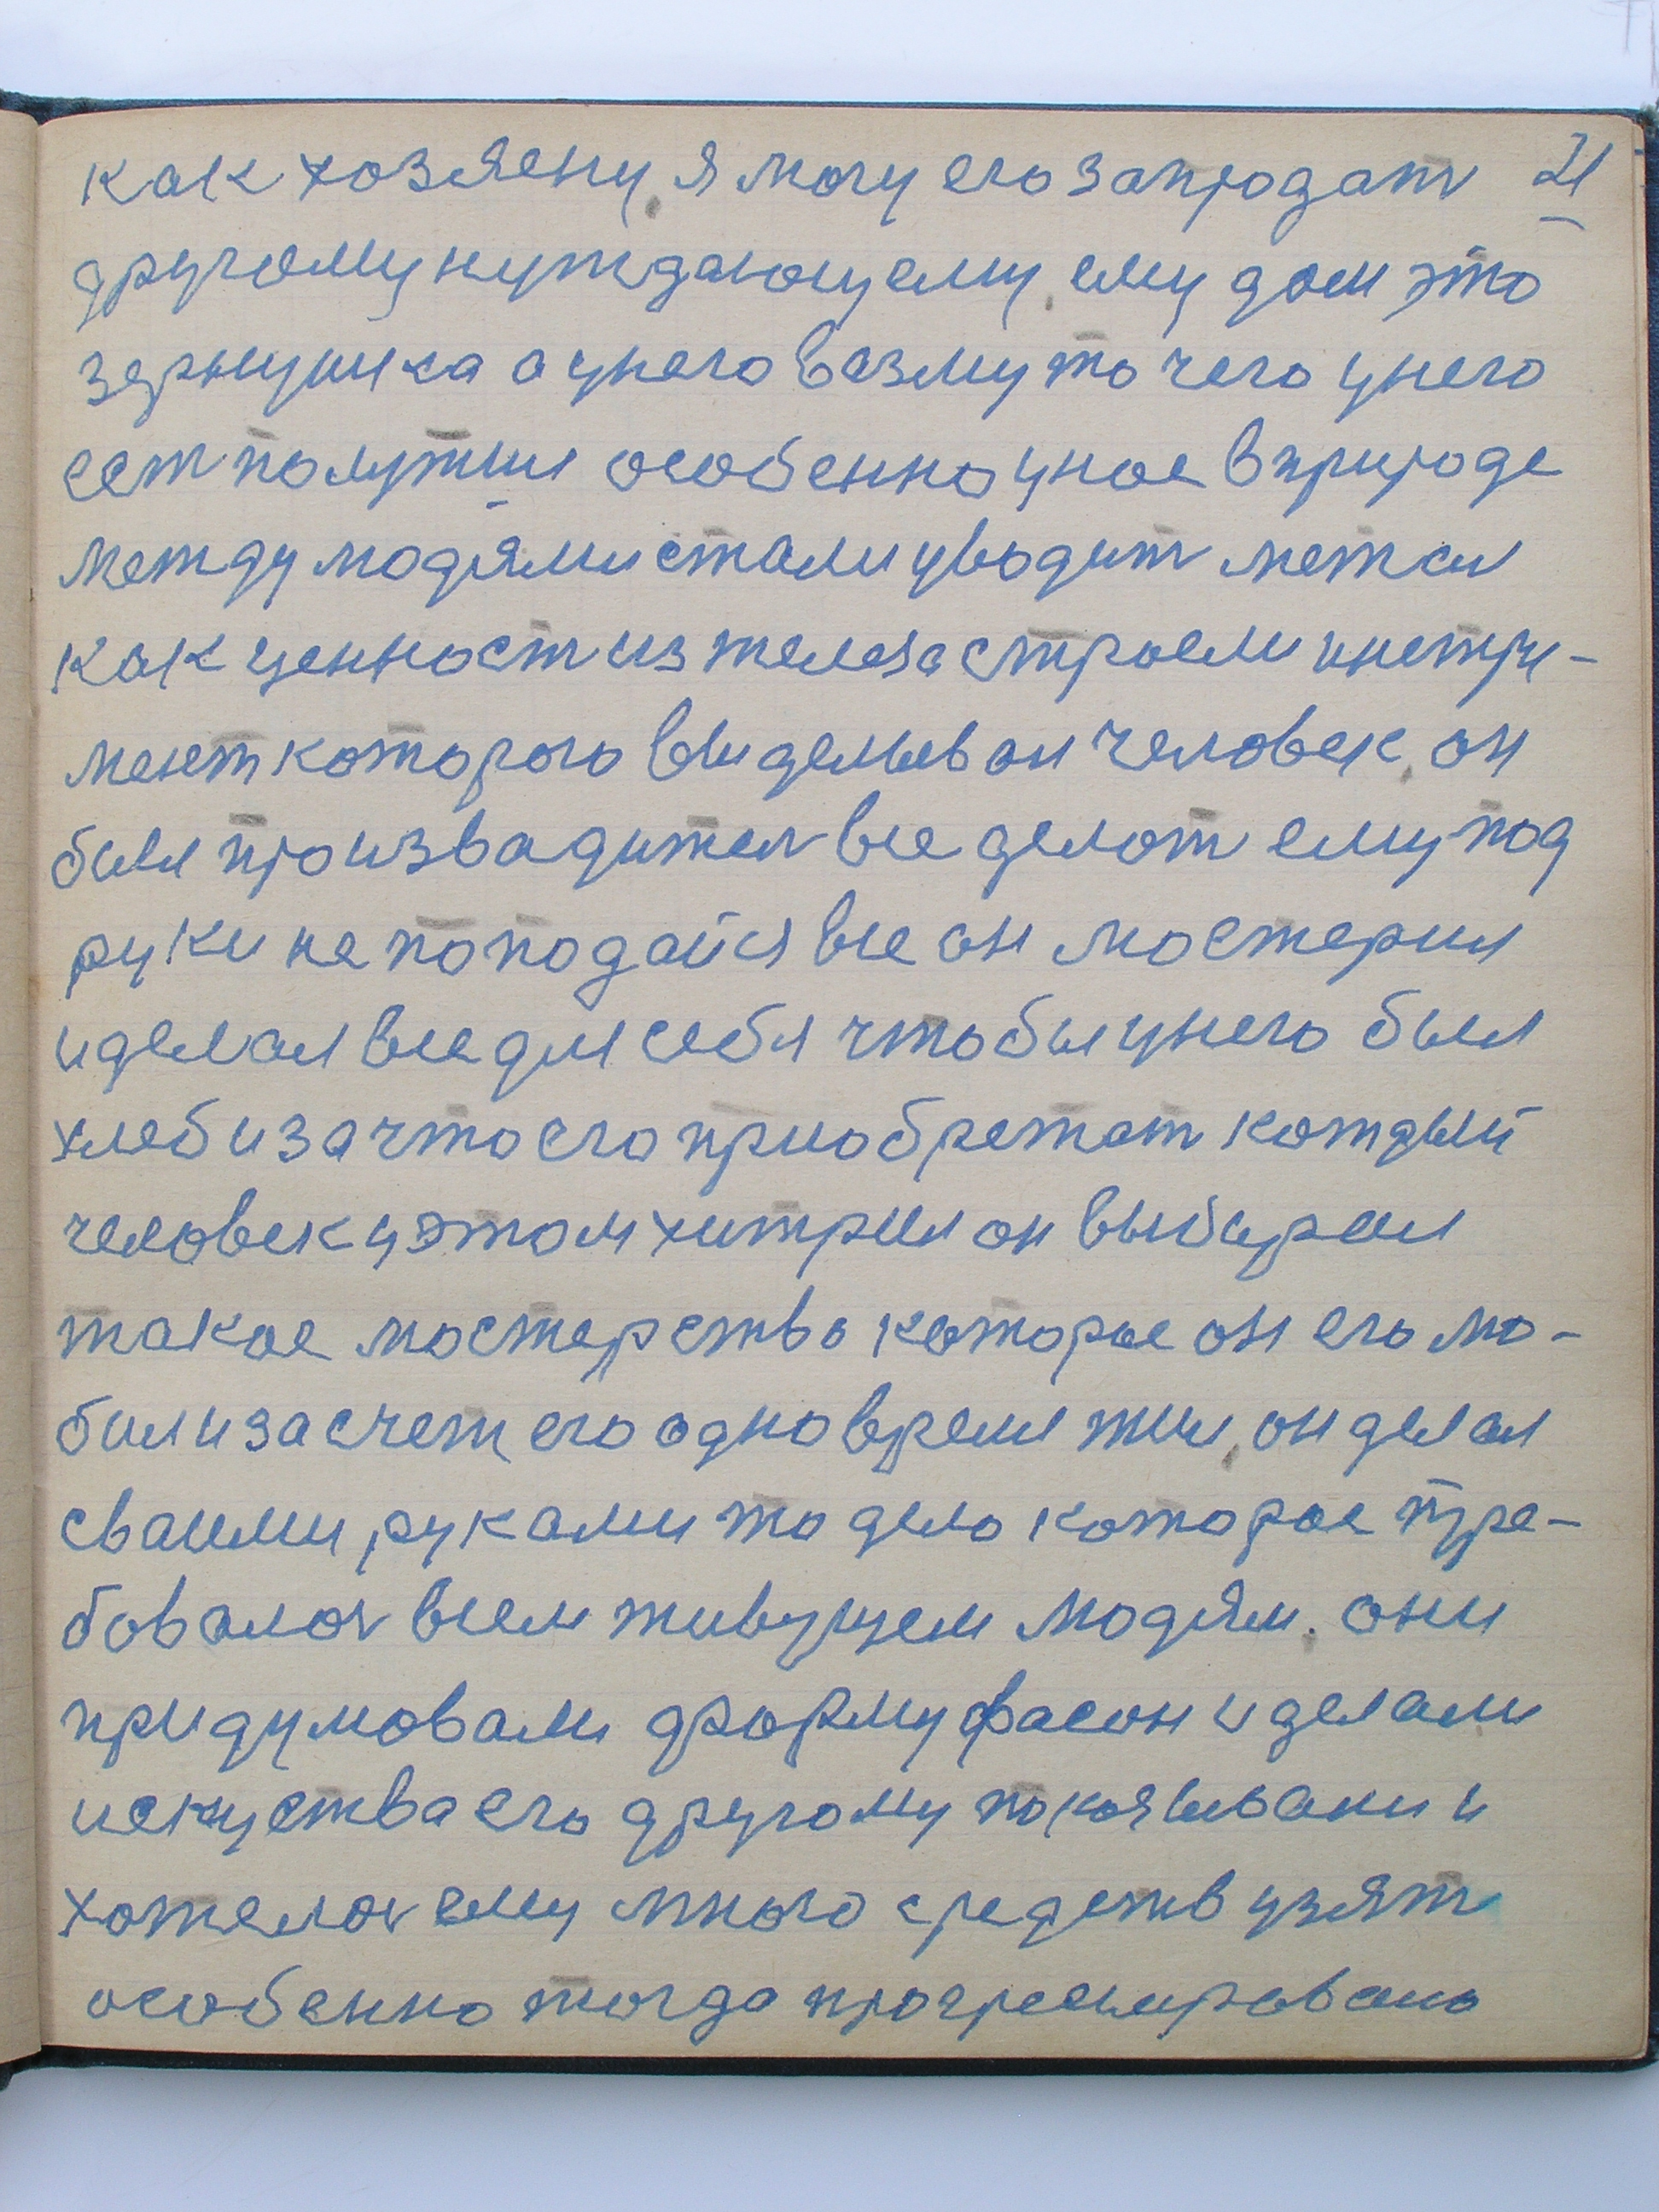 как хозяену, я могу его запродат 21
другому нуждающему, ему дам это
зернушка а унего возму то чего унего
ест полутши особенно уное вприроде
между людями стали уводит метал
как ценност из железа строели инстру-
мент которого выделывал человек, он
был производител все делат ему под
руки не поподайся все он мостерил
иделал все для себя чтобы унего был
хлеб изачто его приобретат каждый
человек уэтом хитрил он выбирал
такое мостерство которое он его лю-
бил изасчет его одно время жил, он делал
сваими руками то дело которое тре-
бовалос всем живущем людям. они
придумовали форму фасон иделали
искуства его другому показывали и
хотелос ему много средств узять
особенно тогда прогресировало